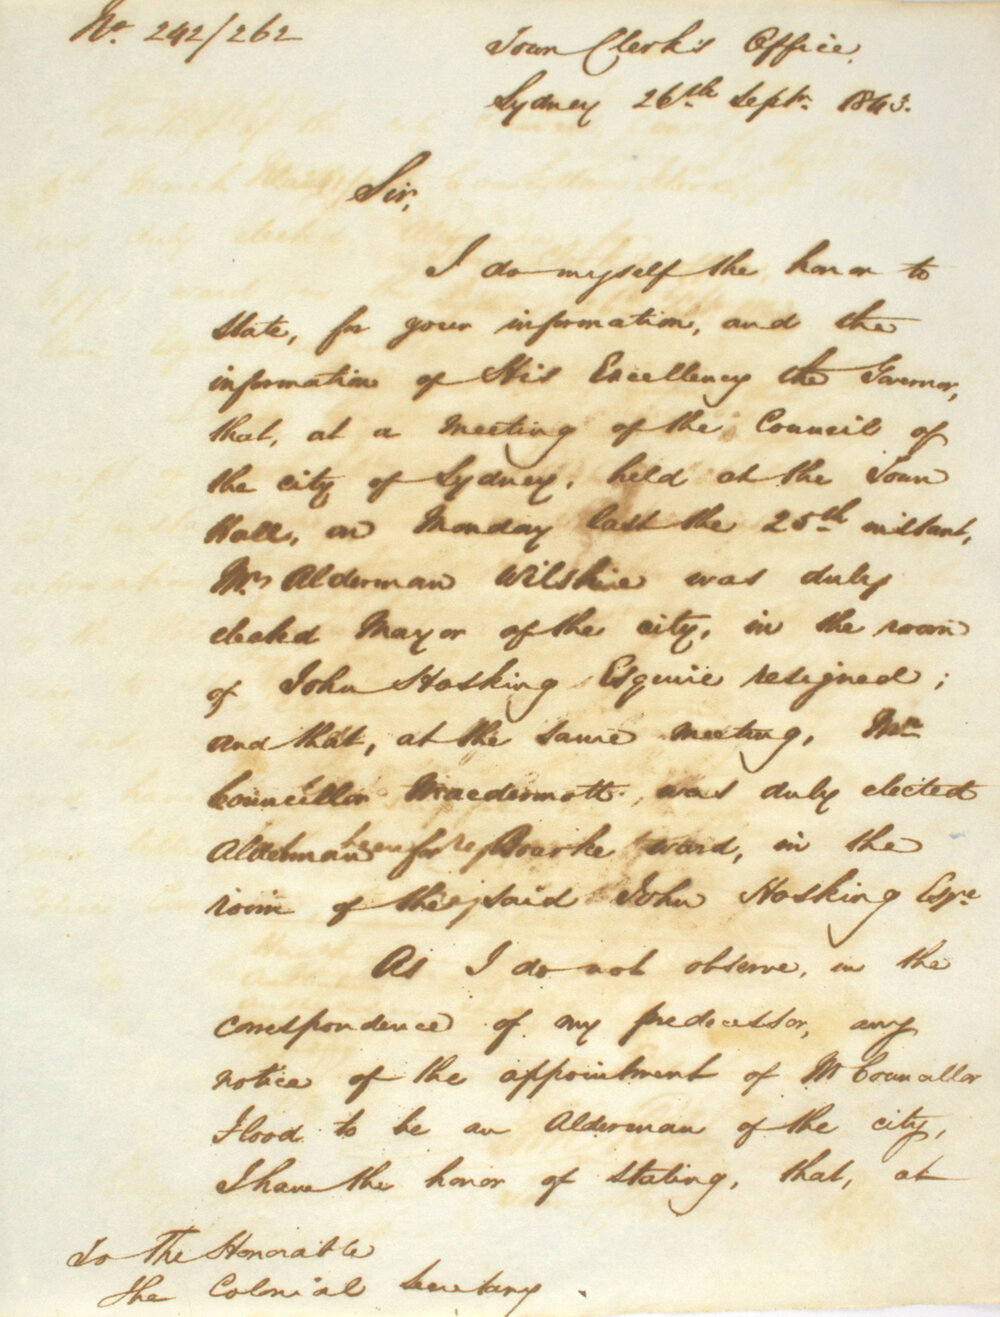 No. 242/262
Town Clerk's Office,
Sydney 26th Septr. 1843.
Sir,
I do myself the honor to
state, for your information, and the
information of His Excellency the Governor,
that, at a Meeting of the Council of
the city of Sydney, held at the Town
Hall, on Monday last the 25th instant,
Mr. Alderman Wilshire was duly
elected Mayor of the city, in the room
of John Hosking Esquire resigned;
and that, at the same meeting, Mr
Councillor Macdermott was duly elected
Alderman for Bourke ward, in the
room of the said John Hosking Esqre
As I do not observe, in the
correspondence of my predecessor, any
notice of the appointment of Mr Councillor
Flood to be an Alderman of the city,
I have the honor of stating, that, at
To The Honorable
The Colonial Secretary.